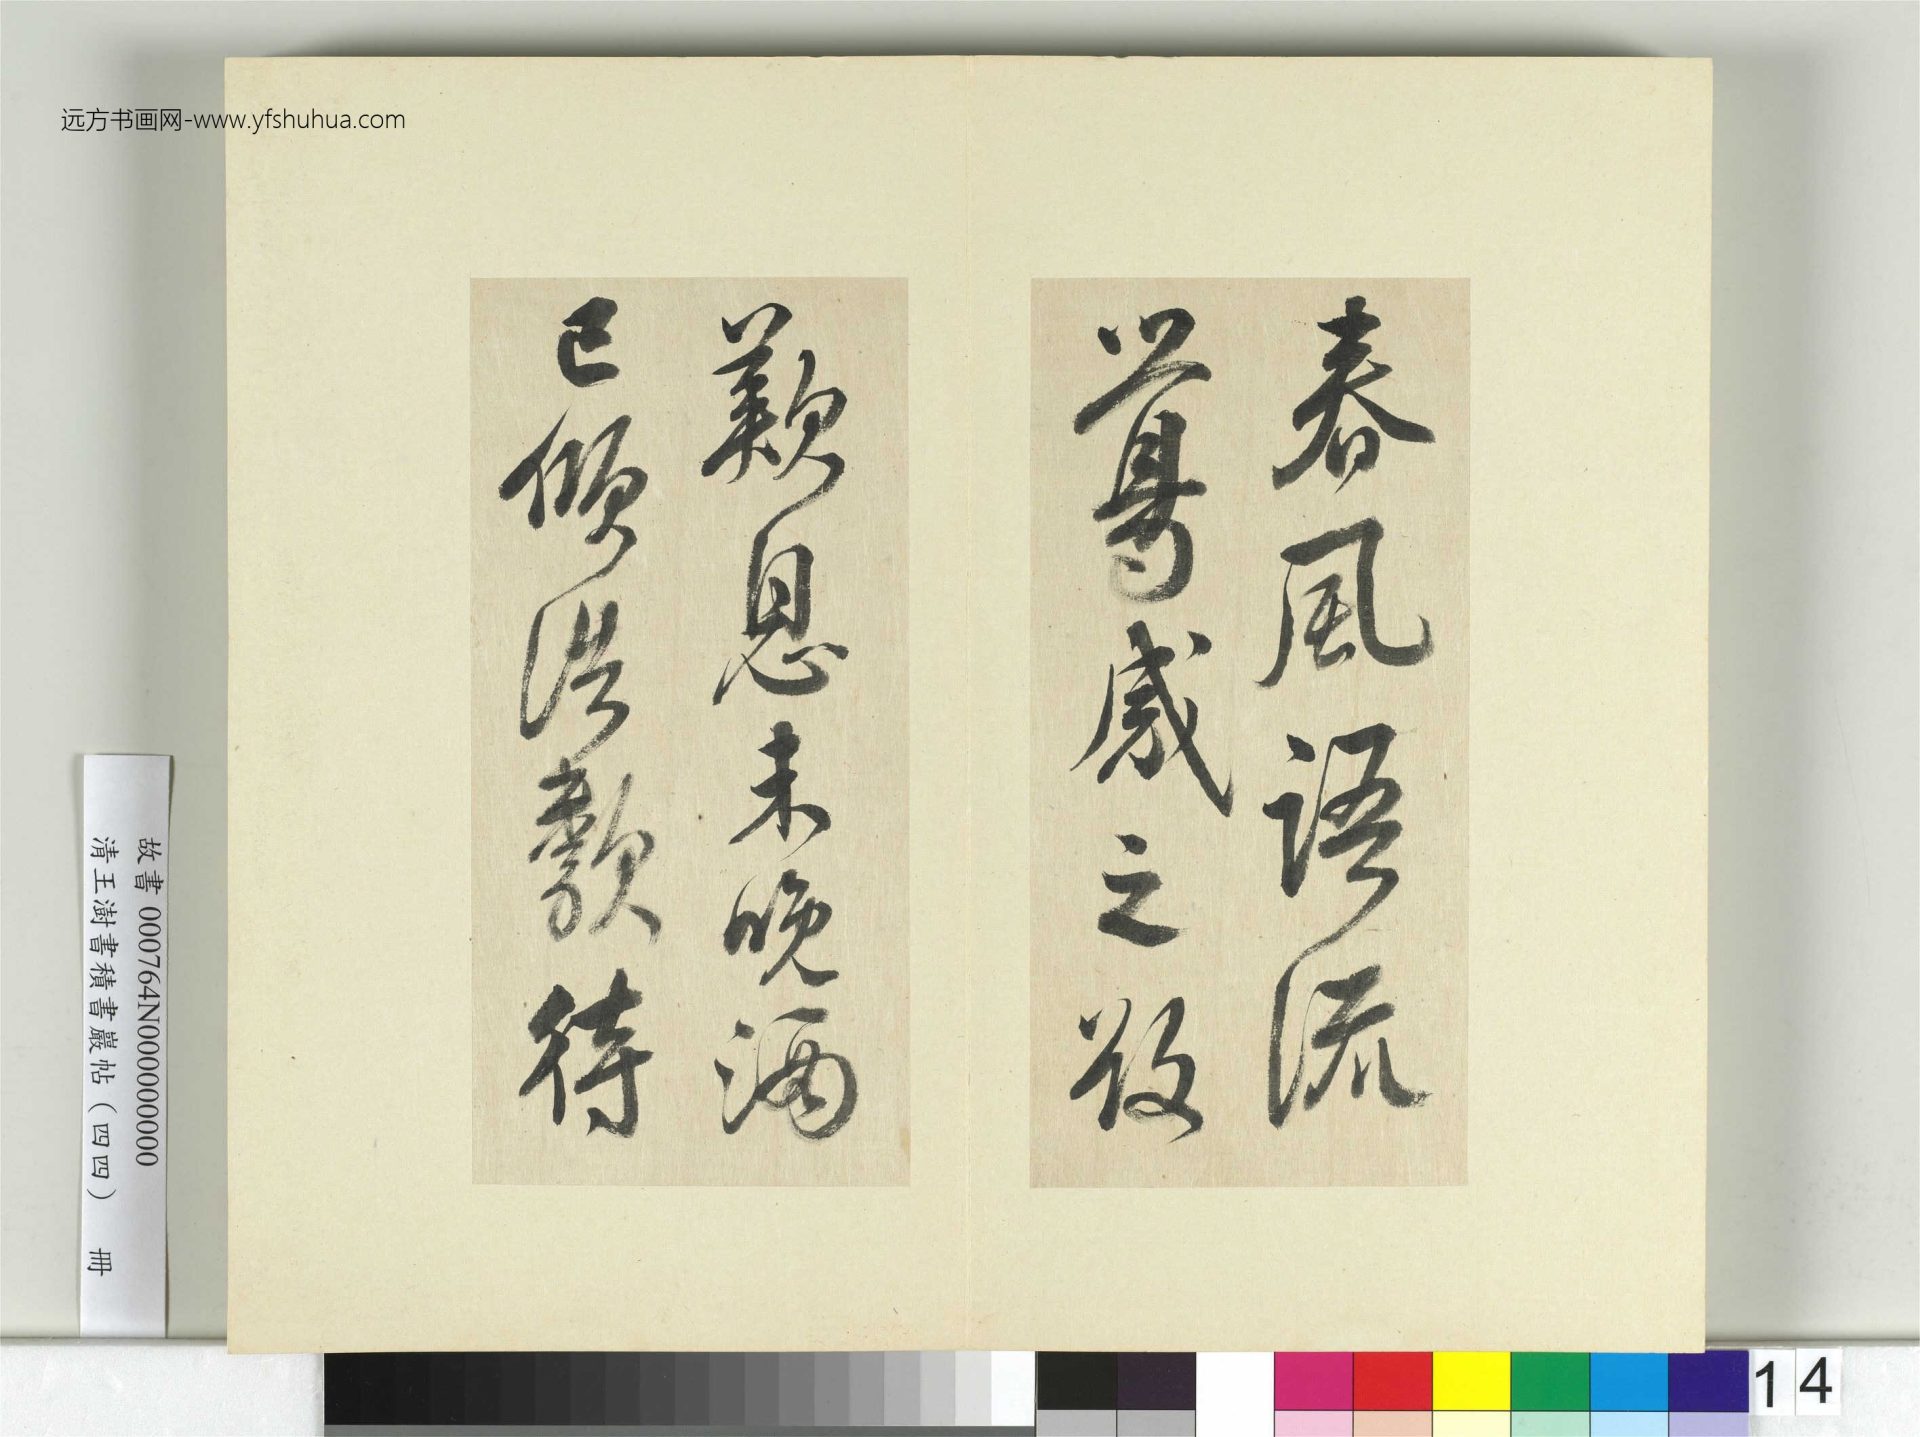 远方书画网-www.yfshuhua.com
春風語流
鶯感之欲
歎息未晚酒
已傾浩歌待
故書 000764N000000000
清王澍書積書巖帖（四四） 冊
14